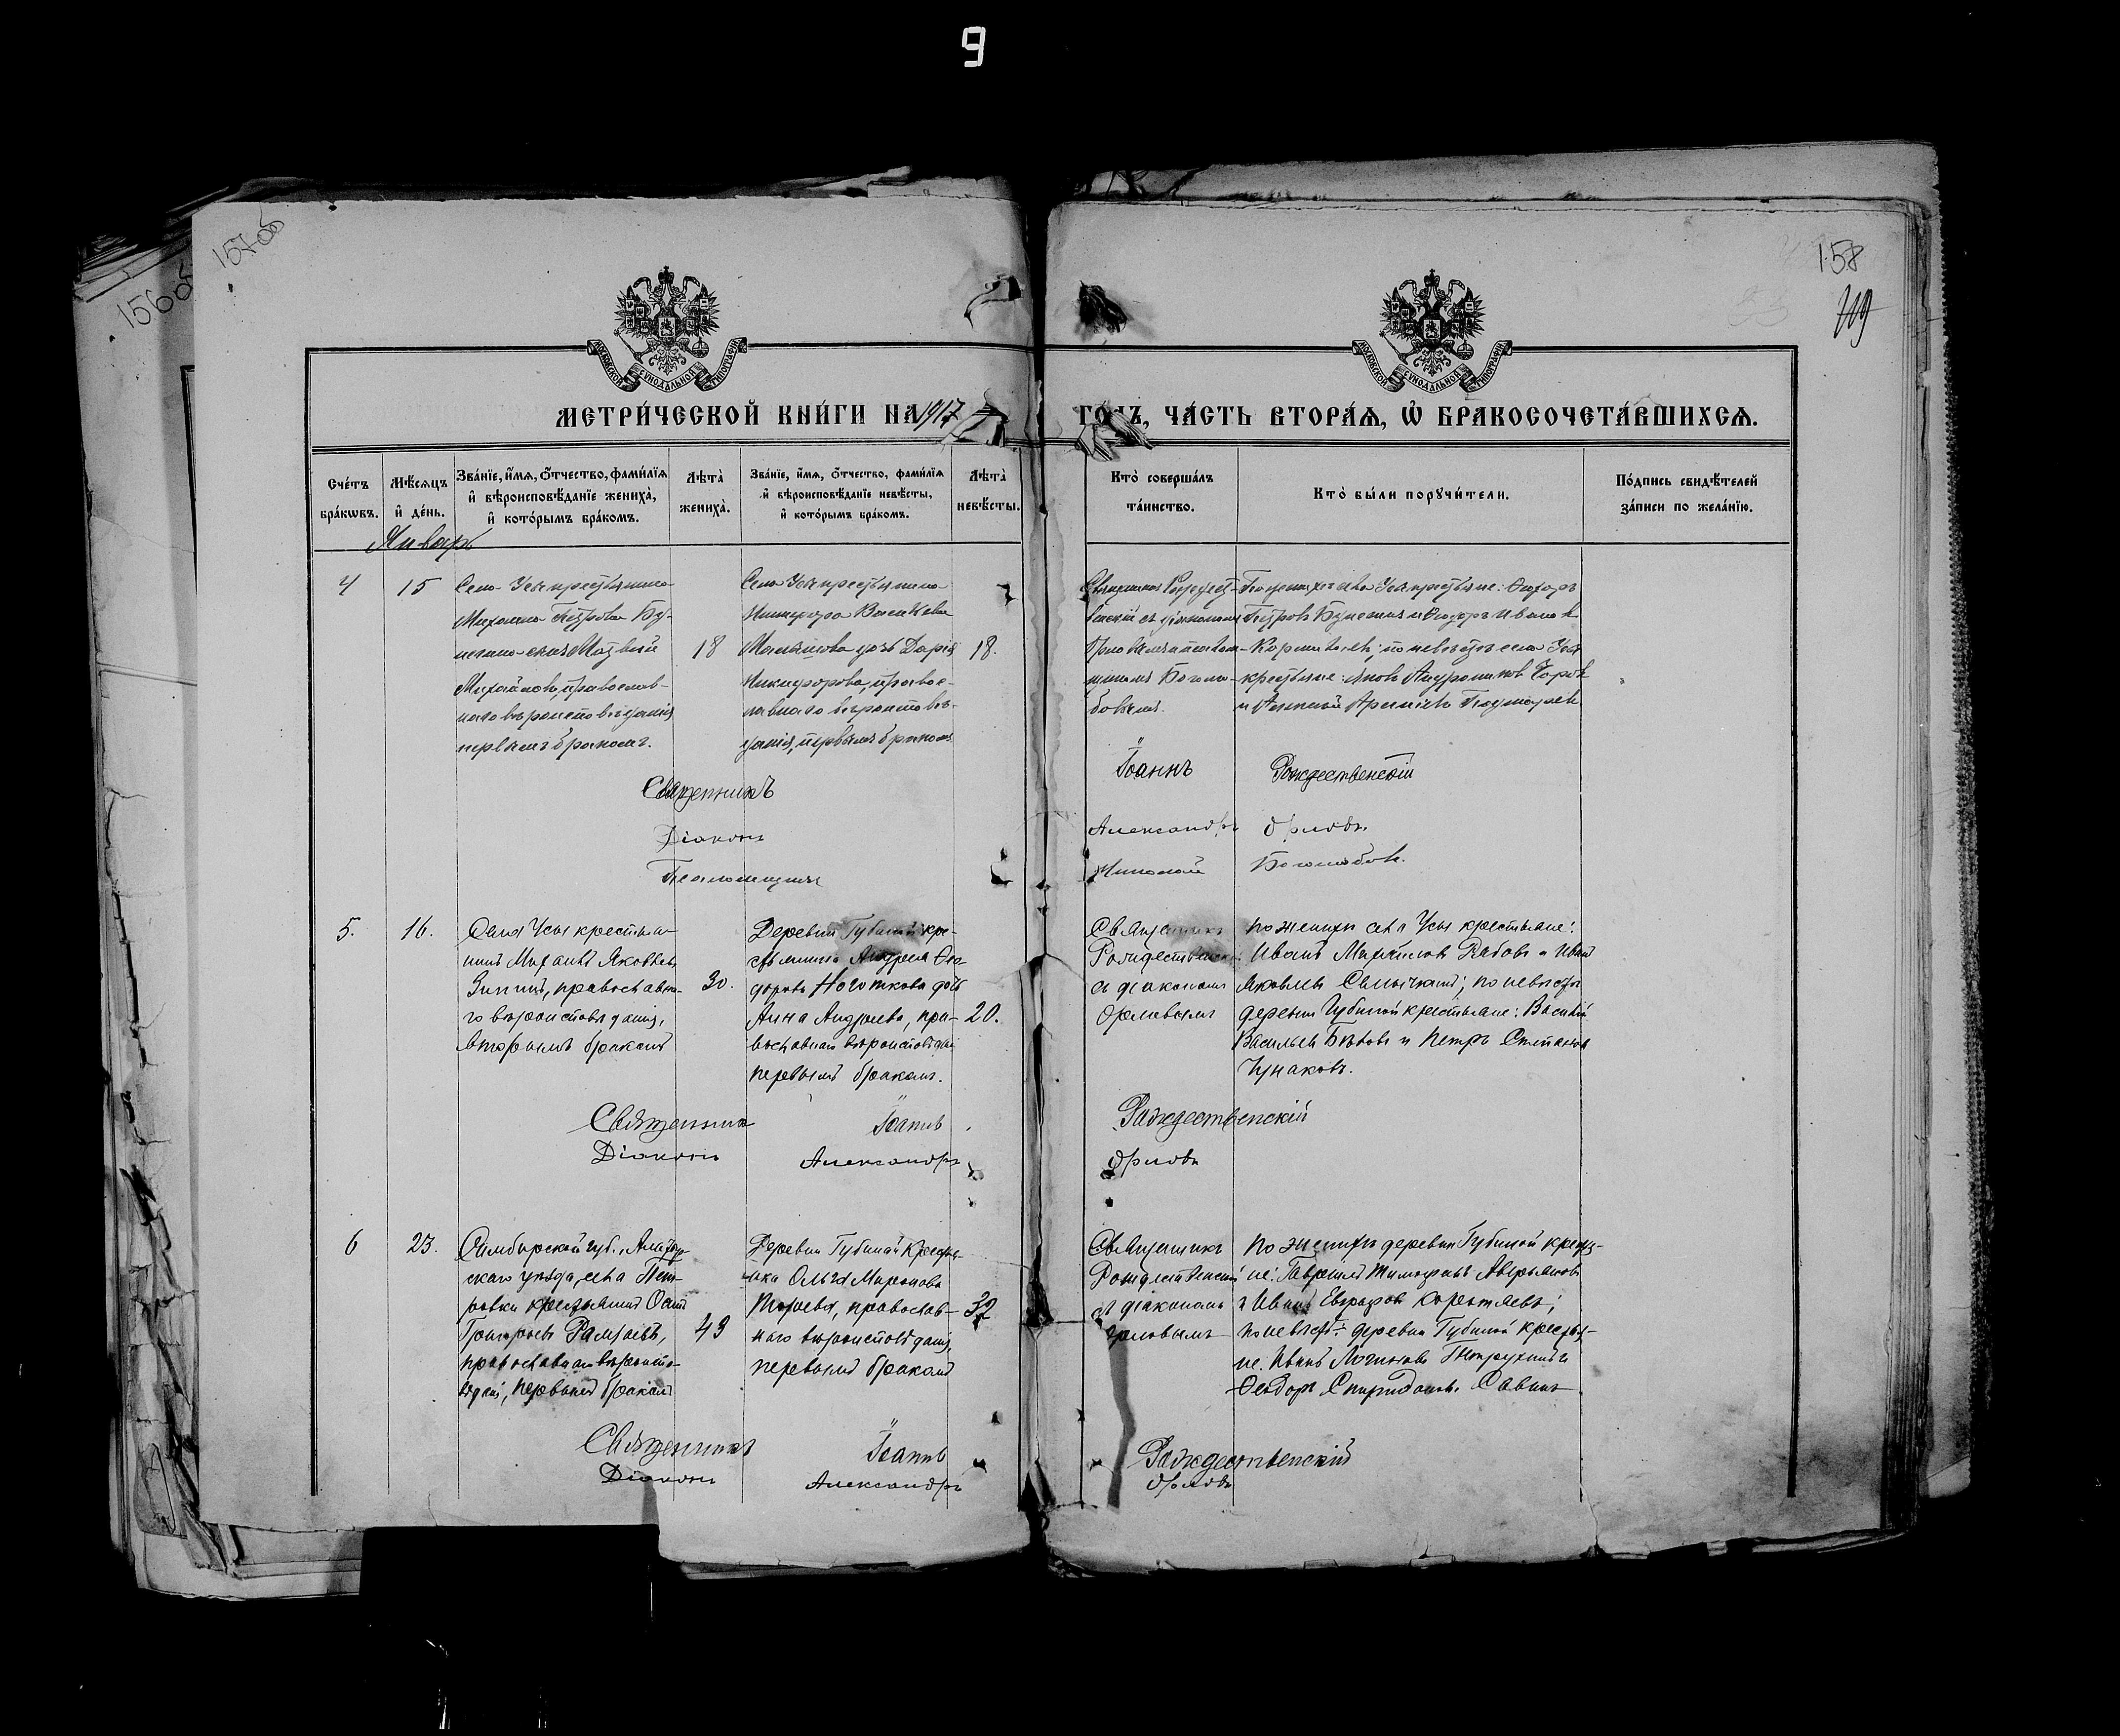 9
157об
156об
158
119
МОСКОВСКОЙ СѴНОДАЛЬНОЙ ТИПОГРАФІИ
МОСКОВСКОЙ СѴНОДАЛЬНОЙ ТИПОГРАФІИ
МЕТРИ́ЧЕСКОЙ КНИ́ГИ НА 1917 ГО́ДЪ, ЧА́СТЬ ВТОРА́Ѧ, Ѡ҆ БРАКОСОЧЕТА́ВШИХСѦ.
Сче́тъ
бра́кѡвъ.
Мѣ́сѧцъ
и҆ де́нь.
Зва́нїе, и҆́мѧ, ѻ҆́тчество, фами́лїѧ
и҆ вѣроисповѣ́данїе жениха̀,
и҆ кото́рымъ бра́комъ.
Лѣта̀
жениха̀.
Зва́нїе, и҆́мѧ, ѻ҆́тчество, фами́лїѧ
и҆ вѣроисповѣ́данїе невѣ́сты,
и҆ кото́рымъ бра́комъ.
Лѣта̀
невѣ́сты.
Кто̀ соверша́лъ
та́инство.
Кто̀ бы́ли порꙋчи́тели.
По́дпись свидѣ́телей
за́писи по жела́нїю.
Январь
4
15
Села Усы крестьянина
Михаила Петрова
сынъ Матвей
Михайловъ, православ-
наго вѣроисповѣданія
первымъ бракомъ.
18
Села Усы крестьянина
Никифора Васильева
дочь Дарія
Никифорова, правос-
лавнаго вѣроисповѣ-
данія, первымъ бракомъ
18.
Священникъ Рождест-
венскій съ діакономъ
Орловымъ и псалом-
щикомъ Боголю-
бовымъ.
По женихѣ села Усы крестьяне: Ѳедоръ
Петровъ и Ѳедоръ Ивановъ
по невѣстѣ села Усы
крестьяне: Яковъ Андрониковъ
и
Священникъ Іоаннъ Рождественскій
Діаконъ Александръ Орловъ.
Псаломщикъ Николай Боголюбовъ.
5.
16.
Села Усы крестья-
нинъ Михаилъ Яковлевъ
Зининъ, православна-
го вѣроисповѣданія,
вторымъ бракомъ
30.
Деревни Губиной кре-
стьянина Андрея Ѳео-
дорова Ноготкова дочь
Анна Андреева, пра-
вославнаго вѣроисповѣданія
первымъ бракомъ.
20.
Священникъ
Рождественскій
съ діакономъ
Орловымъ
по женихѣ села Усы крестьяне:
Иванъ Михайловъ Рябовъ и Иванъ
Яковлевъ; по невѣстѣ
деревни Губиной крестьяне: Василій
Васильевъ Бѣловъ и Петръ Степановъ
Чумаковъ.
Священникъ Іоаннъ Рождественскій
Діаконъ Александръ Орловъ
6
23.
Симбирской губ., Алатыр-
скаго уѣзда, села Пет-
ровки крестьянинъ
Григорьевъ
православнаго вѣроиспо-
вѣданія, первымъ бракомъ
49
Деревни Губиной крестьян-
ка Ольга Миронова
православ-
наго вѣроисповѣданія,
первымъ бракомъ
32
Священникъ
Рождественскій
съ діакономъ
Орловымъ
по женихѣ деревни Губиной крестья-
не: Гавріилъ Тимофеевъ Аверьяновъ
и Иванъ Евграфовъ Коротаевъ;
по невѣстѣ: деревни Губиной крестья-
не: Иванъ Логиновъ Петрухинъ и
Ѳеодоръ Спиридоновъ Савинъ
Священникъ Іоаннъ Рождественскій
Діаконъ Александръ Орловъ